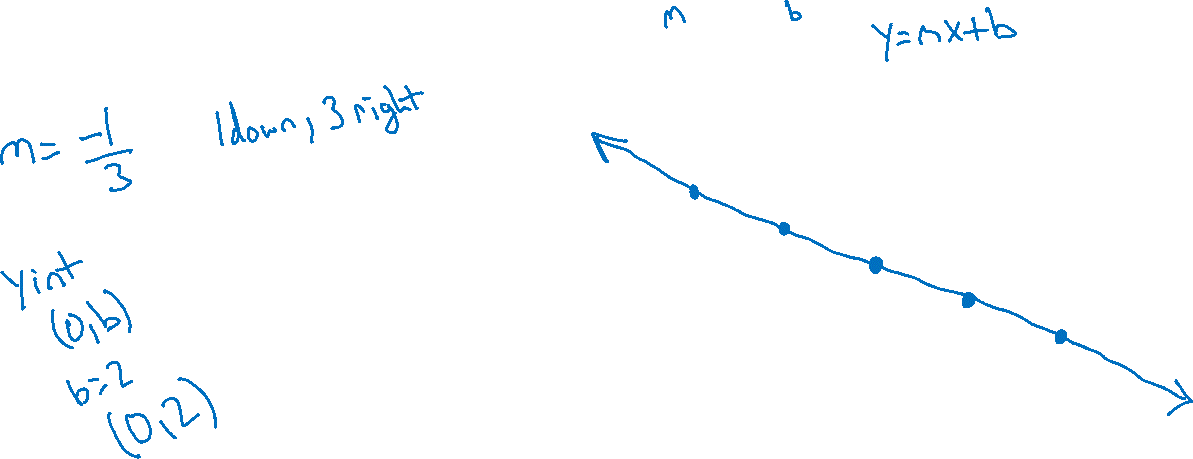 m b
y=mx+b
m= -1/3
1down, 3 right
yint
(0,b)
b=2
(0,2)